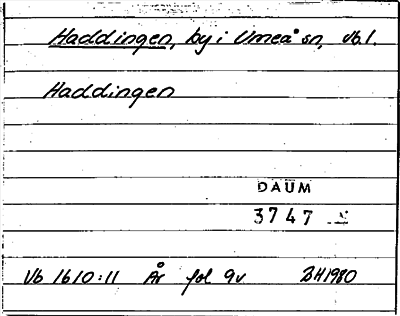 Haddingen, by i Umeå sn, Vb l.
Haddingen
DAUM
3747
Vb 1610:11 År fol 9v BH1980